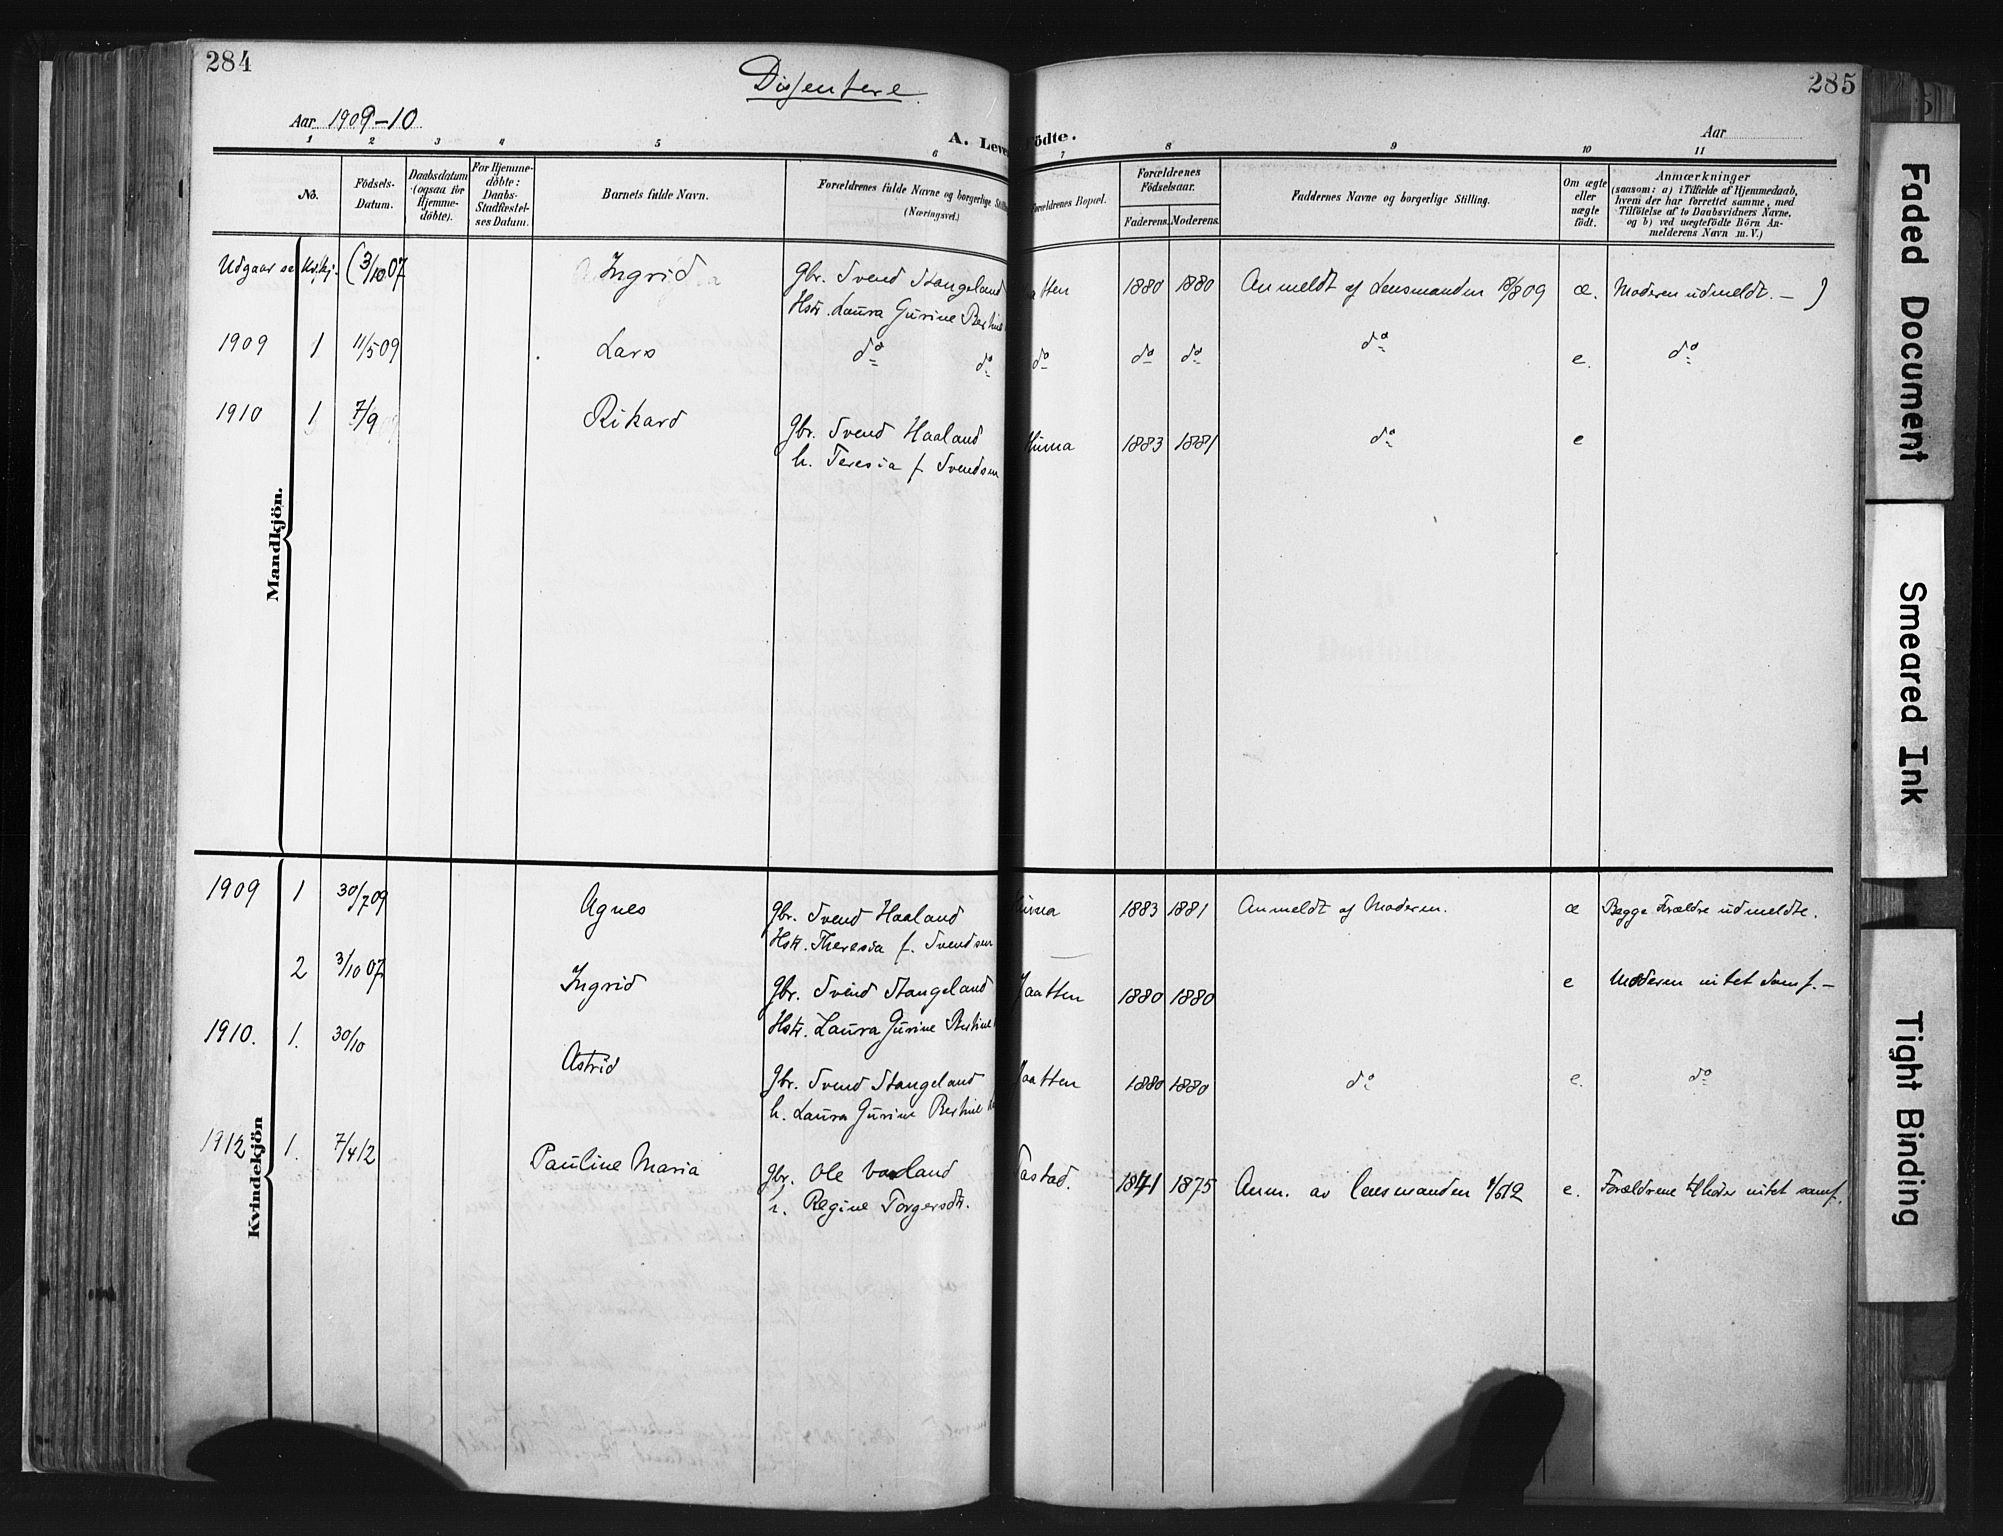 284
Dissentere.
285
Aar 1909-10
A. Leve
Födte.
Aar
1 2 3 4 5 6 7 8 9 10 11
No.
Födsels-
Datum.
Daabsdatum
(ogsaa for
Hjemme-
döbte).
For Hjemme-
döbte:
Daabs-
Stadfæstel-
ses Datum.
Barnets fulde Navn.
Forældrenes fulde Navne og borgerlige Stilling
(Næringsvei.)
Forældrenes Bopæl.
Forældrenes
Födselsaar.
Faderens. Moderens.
Faddernes Navne og borgerlige Stilling.
Om ægte
eller
uægte
födt.
Anmærkninger
(saasom: a) i Tilfælde af Hjemmedaab,
hvem der har forrettet samme, med
Tilföielse af to Daabsvidners Navne,
og b) ved uægtefödte Börn An-
melderens Navn m. V.)
Mandkjön.
Udgaar se Kv.kj. (3/10 07 Ingrid Gbr. Svend Stangeland atten 1880 1880 Anmeldt af Lensmanden 18/8 09 æ. Moderen udmeldt. — )
Hstr. Laura Gurine Bertine
1909 1 11/5 09 Lars do do do do do do e. do
1910 1 7/9 Rikard Gbr. Svend Haaland Huma 1883 1881 do e
h. Teresia f. Svendsen
Kvindekjön
1909 1 30/7 09 Agnes Gbr. Svend Haaland Huma 1883 1881 Anmeldt af Moderen. æ Begge Forældre udmeldte.
Hstr. Theresia f. Svendsen
2 3/10 07 Ingrid Gbr. Svend Stangeland Jaatten 1880 1880 e Moderen intet Samf. —
Hstr. Laura Gurine Bertine
1910. 1. 30/10 Astrid Gbr. Svend Stangeland Jaatten 1880 1880 do e. do
h. Laura Gurine Bertine
1912 1. 7/4 12 Pauline Maria Gbr. Ole Vasland Tastad. 1871 1875 Anm. av lensmanden 1/6 12 e. Forældrene tilhører intet samf.
h. Regine Torgersdt.
Faded Document
Smeared Ink
Tight Binding